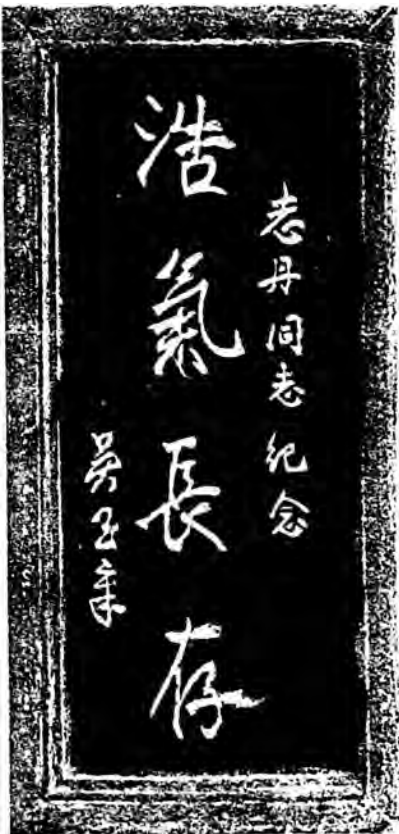 志丹同志纪念
浩氣長存
吳玉章